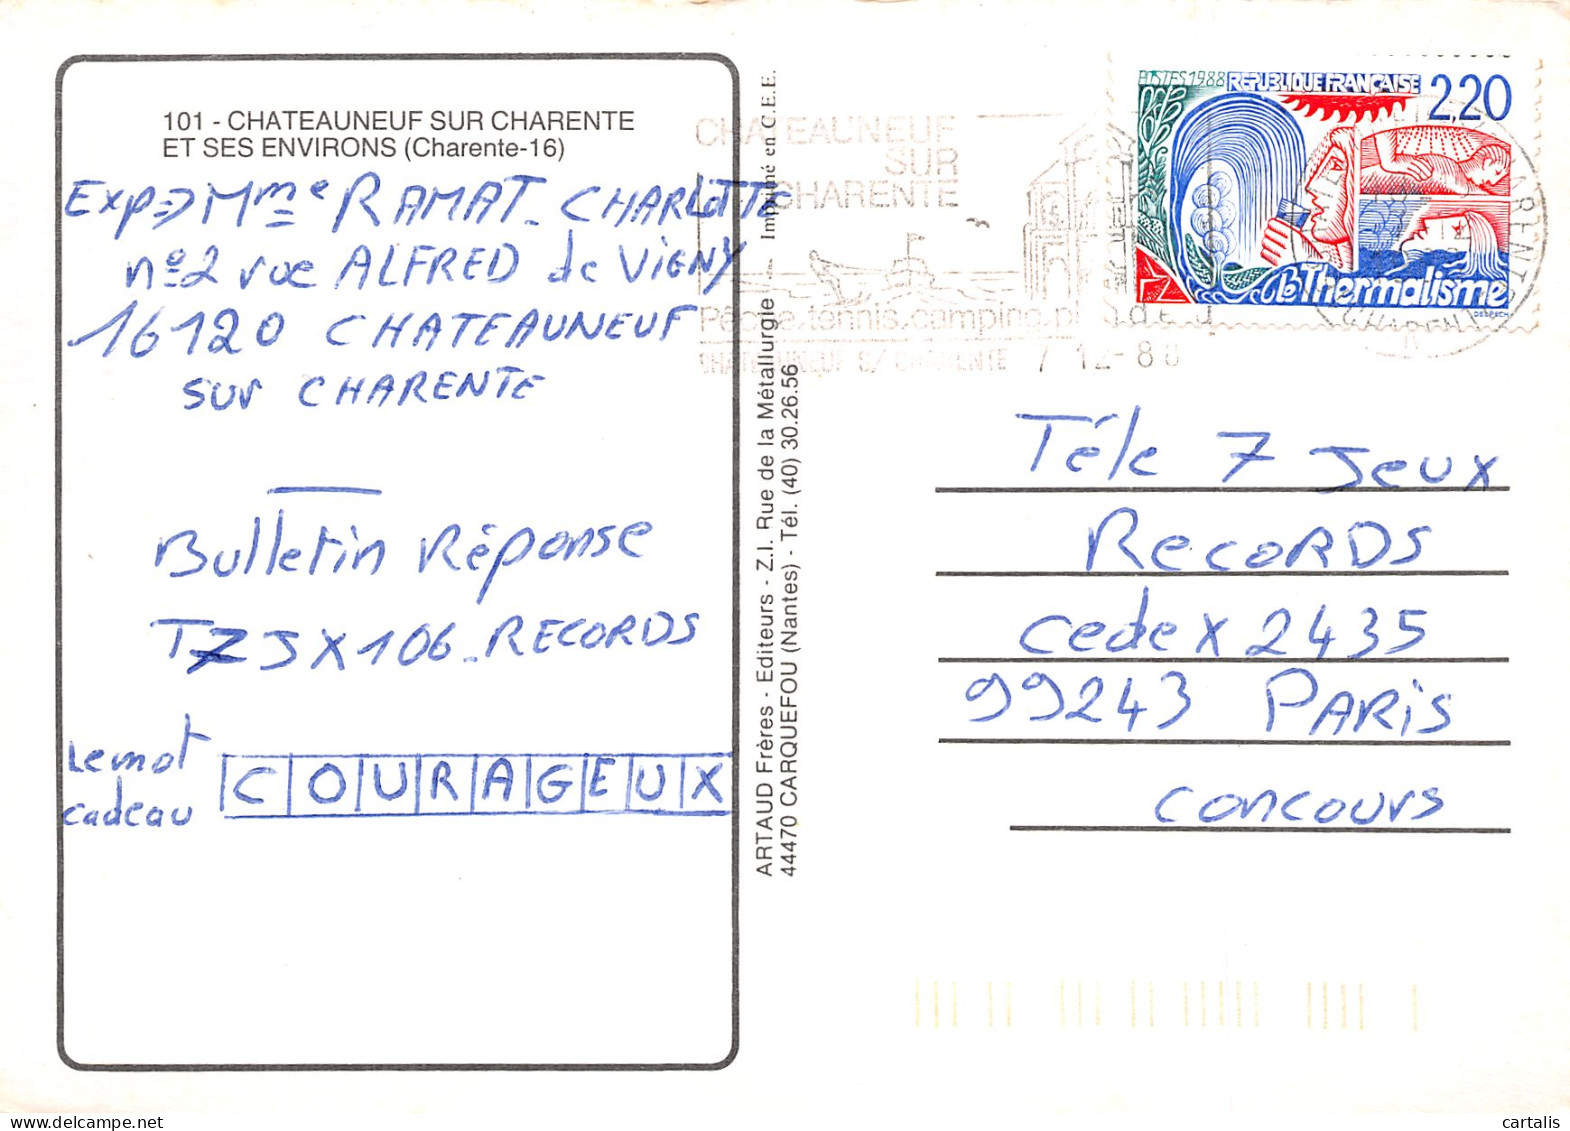 101 - CHATEAUNEUF SUR CHARENTE
ET SES ENVIRONS (Charente-16)
Exp⇒ Mme RAMAT. CHARLOTTE
nº2 rue ALFRED de VIGNY
16120 CHATEAUNEUF
SUR CHARENTE
Bulletin Réponse
T7JX106.RECORDS
Le mot
cadeau
COURAGEUX
ARTAUD Frères - Editeurs - Z.I. Rue de la Métallurgie
Imprimé en C.E.E.
44470 CARQUEFOU (Nantes) - Tél. (40) 30.26.56
CHATEAUNEUF
SUR
CHARENTE
Pêche, tennis, camping,
CHATEAUNEUF S/ CHARENTE 7 12-88
POSTES 1988 REPUBLIQUE FRANÇAISE 2,20
le Thermalisme
DESPECH
Téle 7 Jeux
RecoRDS
cedex 2435
99243 PARiS
concours
cartalis.com